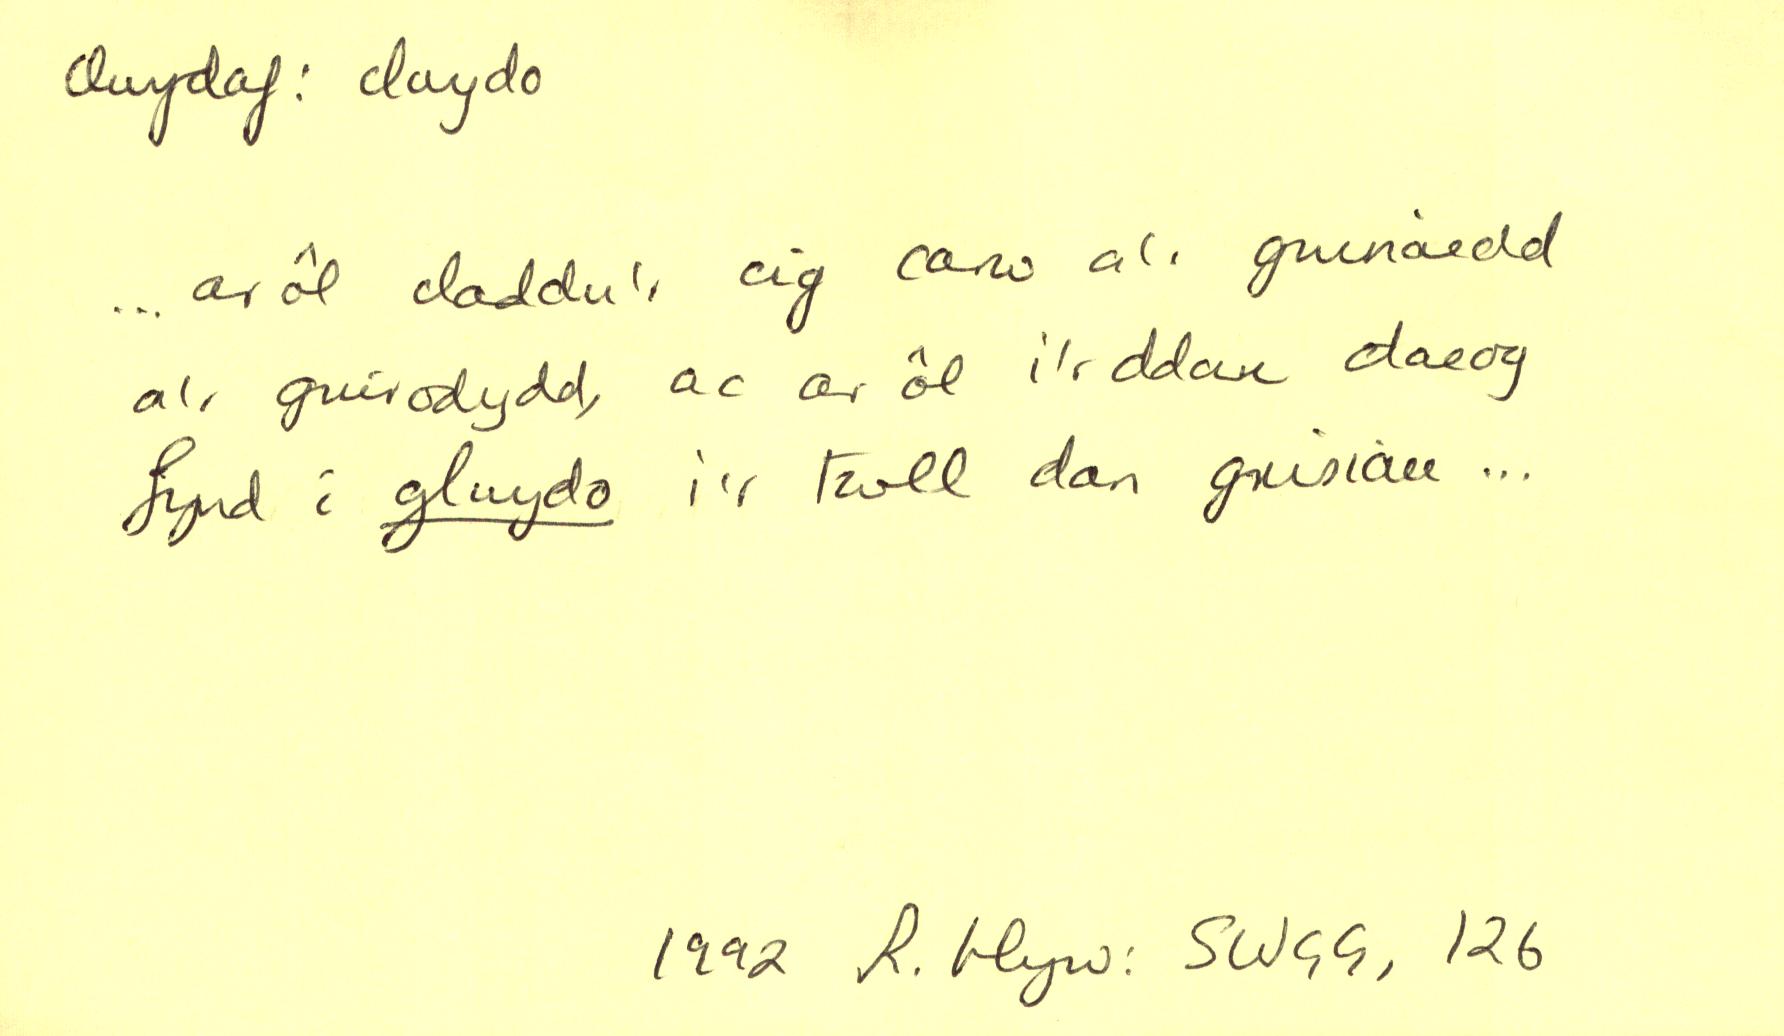 clwydaf: clwydo
... ar ôl claddu'r cig carw a'r gwinoedd
a'r gwirodydd, ac ar ôl i'r ddau daeog
fynd i glwydo i'r twll dan grisiau ...
1992 R. Hywo: SWGG, 126